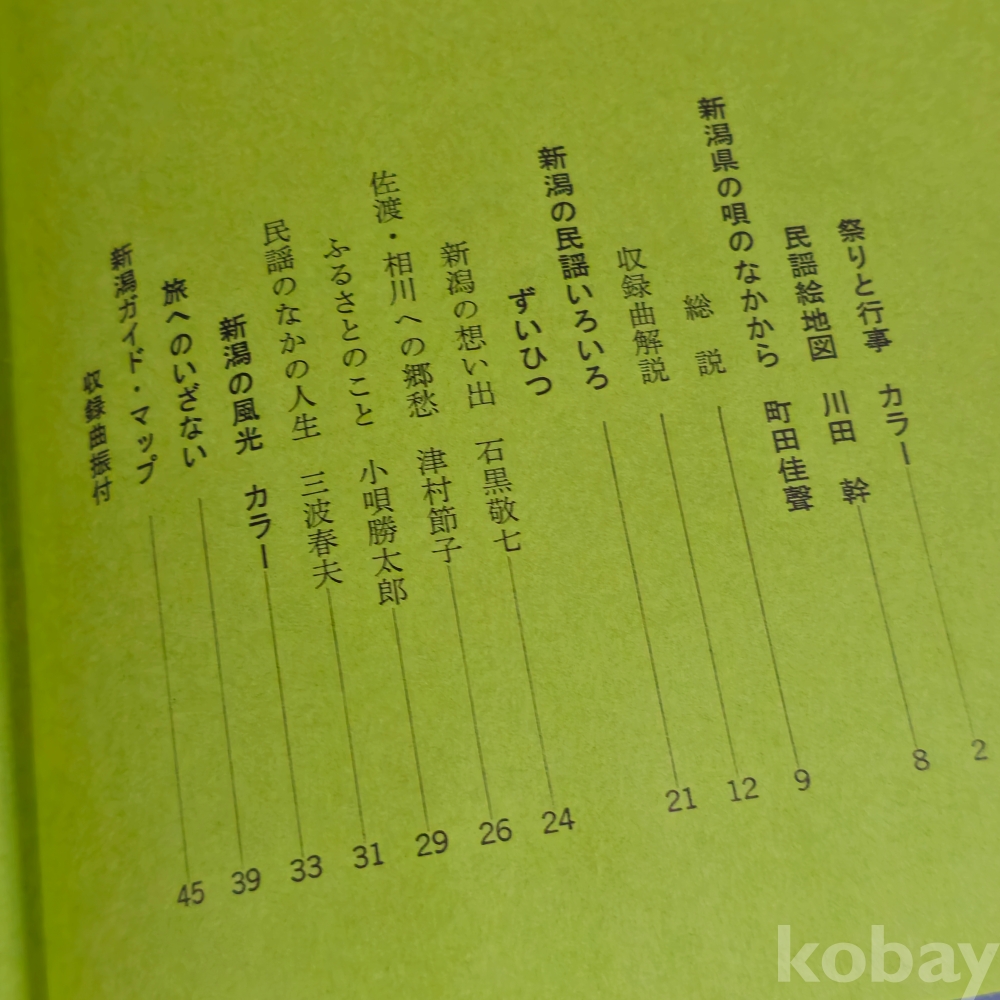 祭りと行事 カラー 2
民謡絵地図 川田 幹 8
新潟県の唄のなかから 町田佳聲
総 説 9
収録曲解説 12
新潟の民謡いろいろ 21
ずいひつ
新潟の想い出 石黒敬七 24
佐渡・相川への郷愁 津村節子 26
ふるさとのこと 小唄勝太郎 29
民謡のなかの人生 三波春夫 31
新潟の風光 カラー 33
旅へのいざない 39
新潟ガイド・マップ 45
収録曲振付
kobay